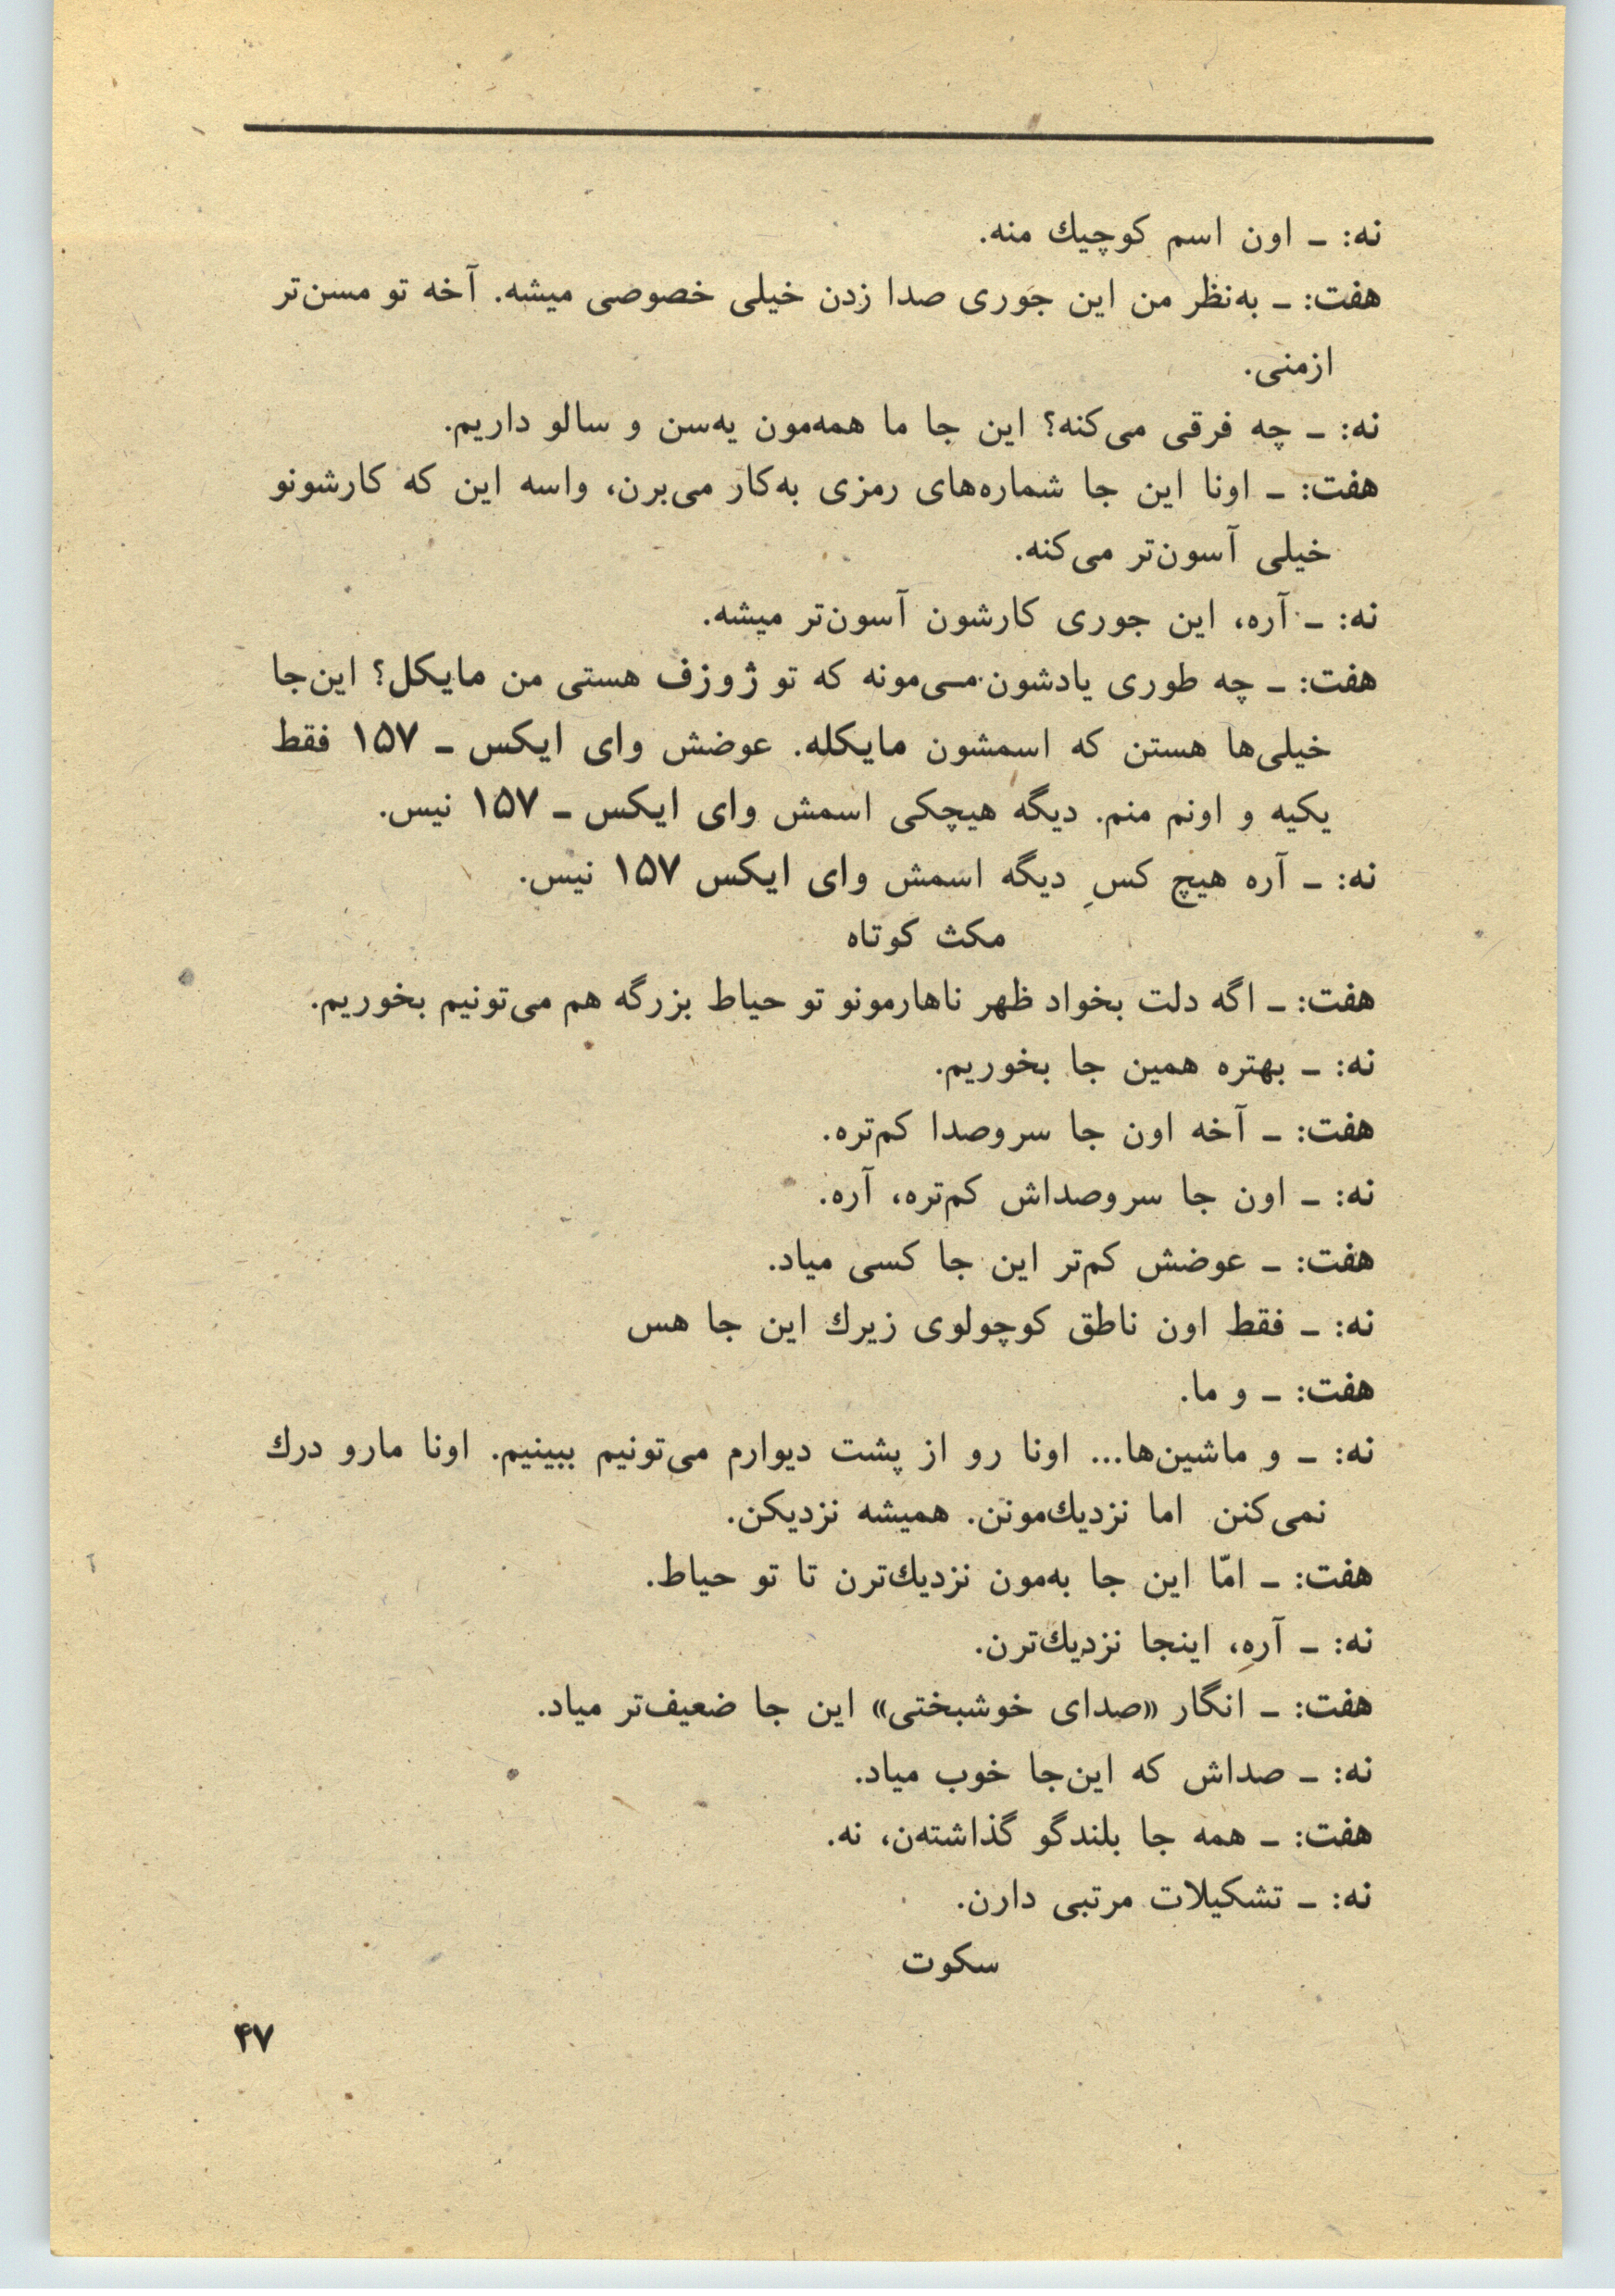 نه: ـ اون اسم کوچیك منه.
هفت: ـ به‌نظر من این جوری صدا زدن خیلی خصوصی میشه. آخه تو مسن‌تر
ازمنی.
نه: ـ چه فرقی می‌کنه؟ این جا ما همه‌مون یه‌سن و سالو داریم.
هفت: ـ اونا این جا شماره‌های رمزی به‌کار می‌برن، واسه این که کارشونو
خیلی آسون‌تر می‌کنه.
نه: ـ آره، این جوری کارشون آسون‌تر میشه.
هفت: ـ چه طوری یادشون می‌مونه که تو ژوزف هستی من مایکل؟ این‌جا
خیلی‌ها هستن که اسمشون مایکله. عوضش وای ایکس ـ ۱۵۷ فقط
یکیه و اونم منم. دیگه هیچکی اسمش وای ایکس ـ ۱۵۷ نیس.
نه: ـ آره هیچ کسِ دیگه اسمش وای ایکس ۱۵۷ نیس.
مکث کوتاه
هفت: ـ اگه دلت بخواد ظهر ناهارمونو تو حیاط بزرگه هم می‌تونیم بخوریم.
نه: ـ بهتره همین جا بخوریم.
هفت: ـ آخه اون جا سروصدا کم‌تره.
نه: ـ اون جا سروصداش کم‌تره، آره.
هفت: ـ عوضش کم‌تر این جا کسی میاد.
نه: ـ فقط اون ناطق کوچولوی زیرك این جا هس
هفت: ـ و ما.
نه: ـ و ماشین‌ها... اونا رو از پشت دیوارم می‌تونیم ببینیم. اونا مارو درك
نمی‌کنن اما نزدیك‌مونن. همیشه نزدیکن.
هفت: ـ امّا این جا به‌مون نزدیك‌ترن تا تو حیاط.
نه: ـ آره، اینجا نزدیك‌ترن.
هفت: ـ انگار «صدای خوشبختی» این جا ضعیف‌تر میاد.
نه: ـ صداش که این‌جا خوب میاد.
هفت: ـ همه جا بلندگو گذاشته‌ن، نه.
نه: ـ تشکیلات مرتبی دارن.
سکوت
۴۷